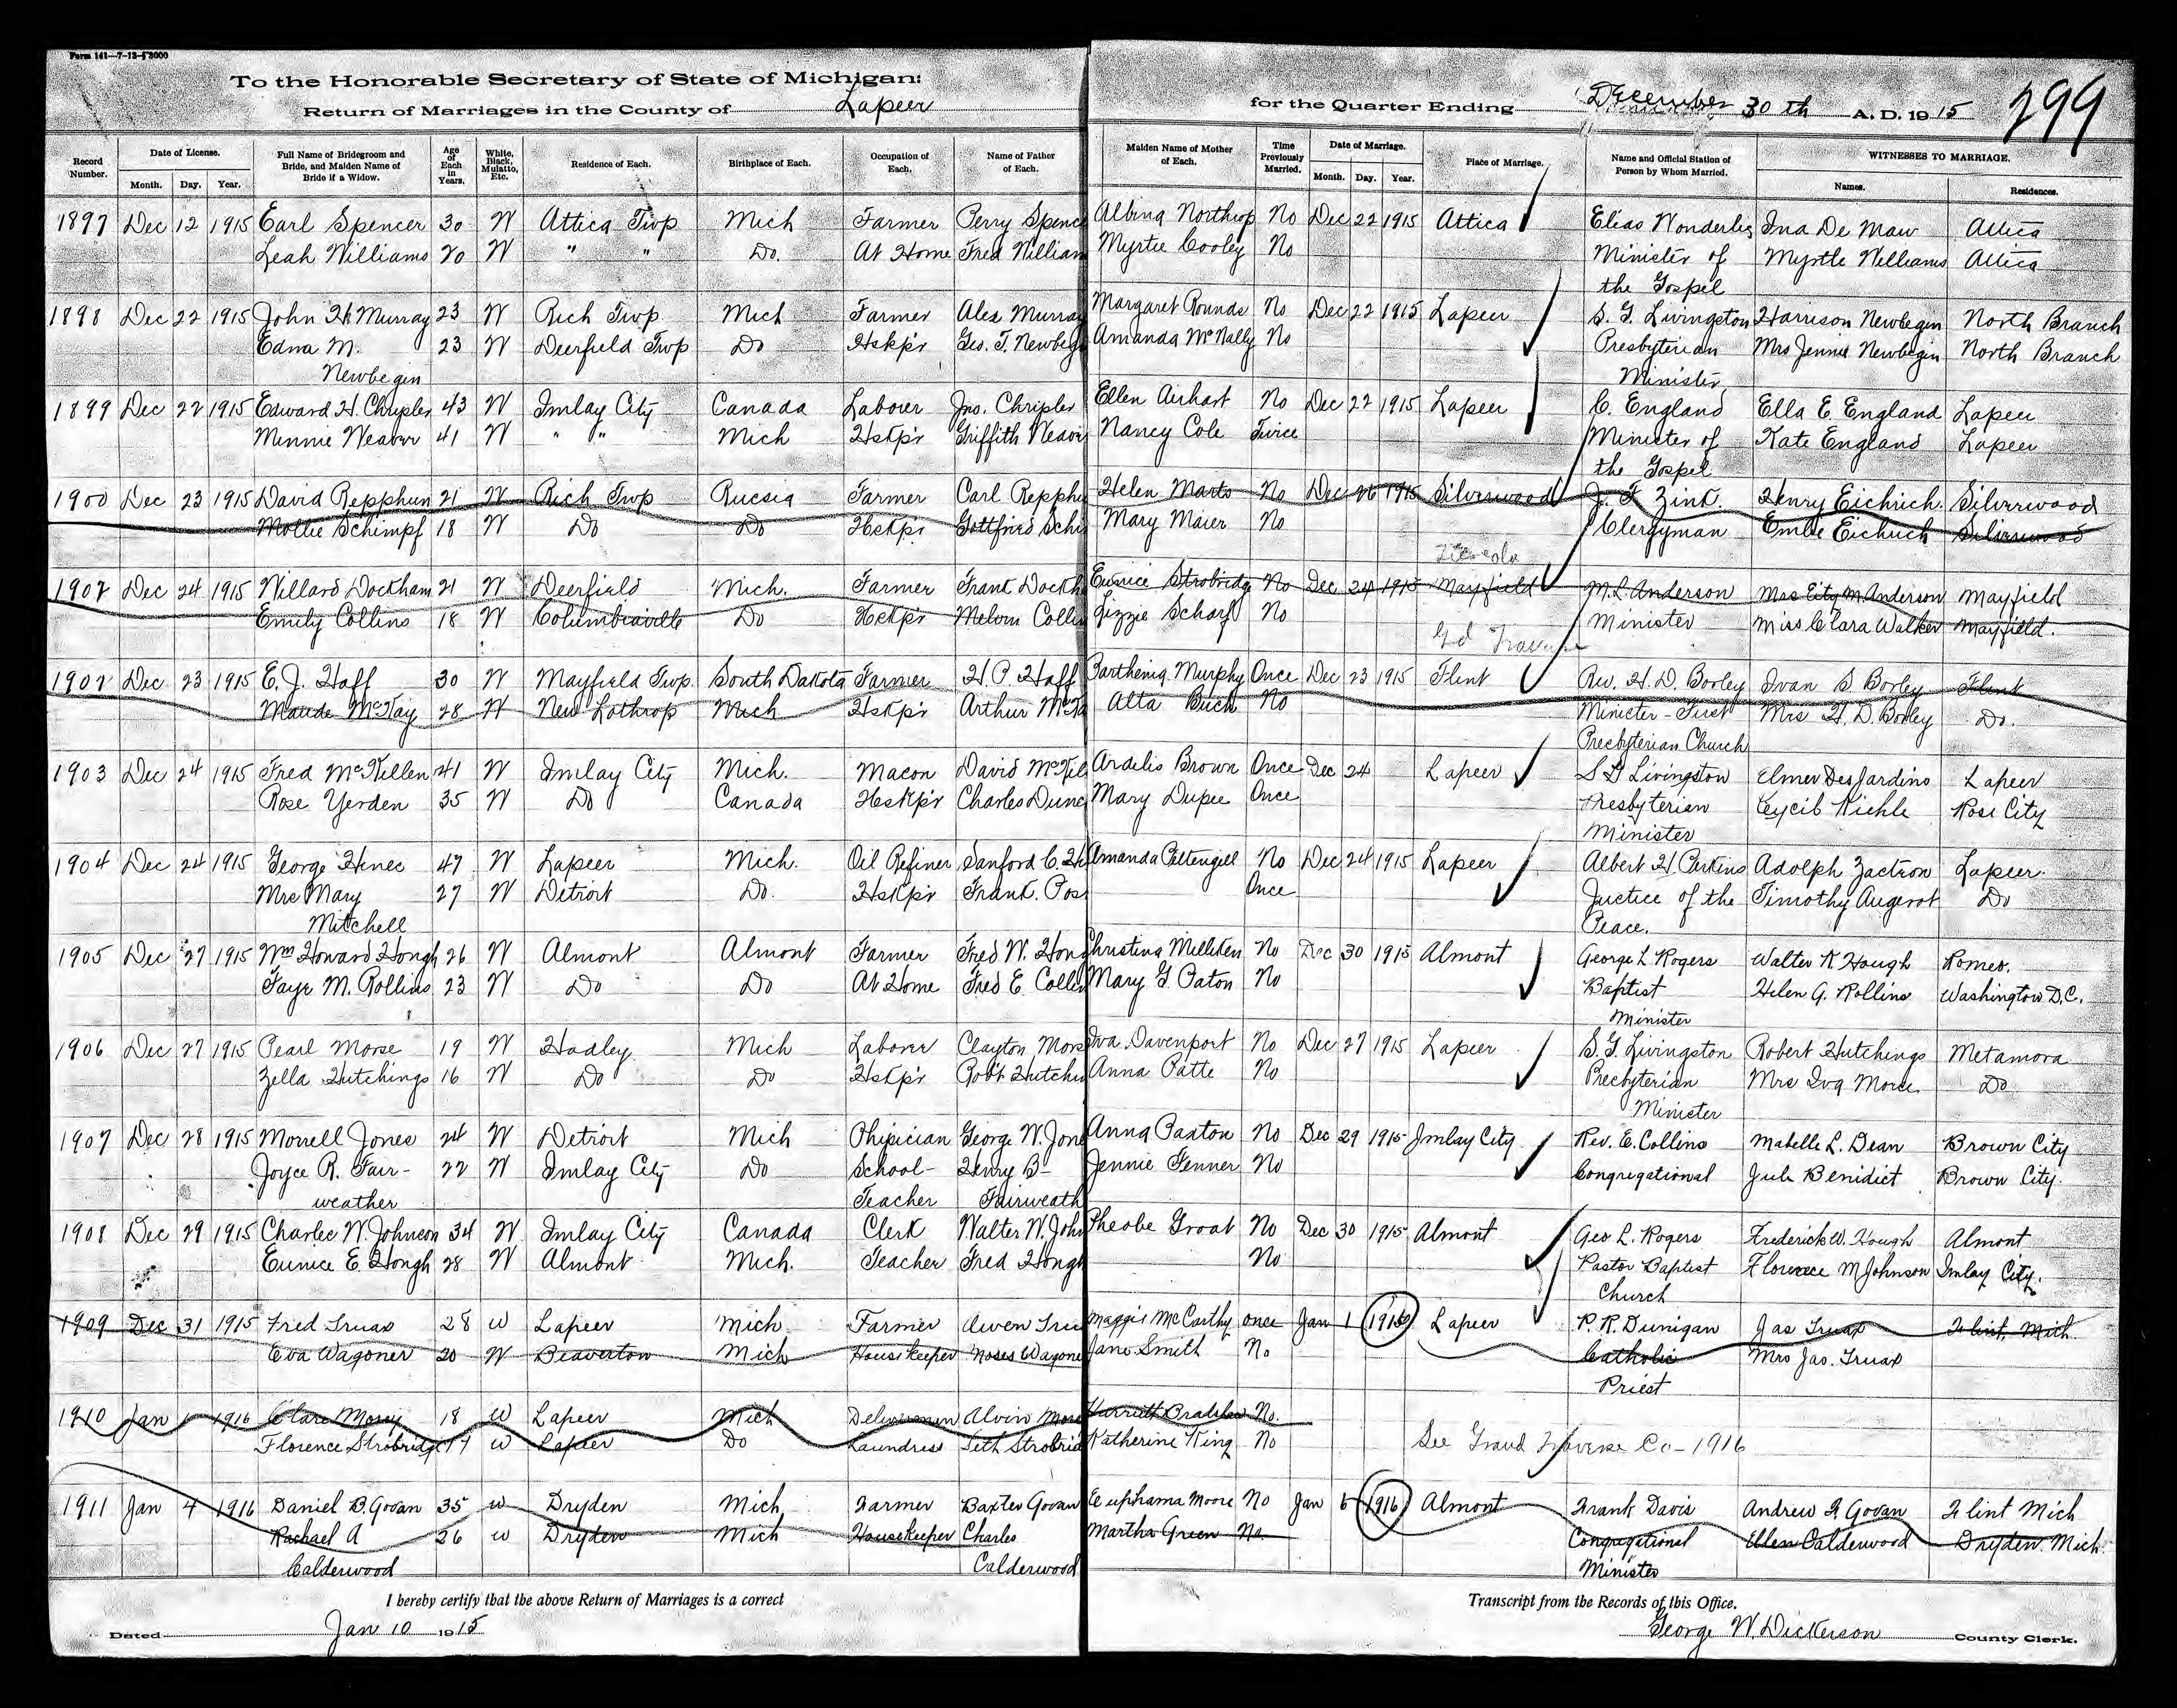 Form 141—7-13-5 2000
To the Honorable Secretary of State of Michigan:
Return of Marriages in the County of Lapeer for the Quarter Ending December 30th A. D. 1915 299
Record Number. Date of License. Month. Day. Year. Full Name of Bridegroom and Bride, and Maiden Name of Bride if a Widow. Age of Each in Years. White, Black, Mulatto, Etc. Residence of Each. Birthplace of Each. Occupation of Each. Name of Father of Each. Maiden Name of Mother of Each. Time Previously Married. Date of Marriage. Month. Day. Year. Place of Marriage. Name and Official Station of Person by Whom Married. WITNESSES TO MARRIAGE. Names. Residences.
1897 Dec 12 1915 Earl Spencer 30 W Attica Twp Mich Farmer Perry Spence Albina Northrop No Dec 22 1915 Attica Elias Wonderly Ina De Maw Attica
Leah Williams 20 W " " Do. At Home Fred William Myrtie Cooley No Minister of Myrtle Williams Attica
the Gospel
1898 Dec 22 1915 John H. Murray 23 W Rich Twp Mich Farmer Alex Murray Margaret Rounds No Dec 22 1915 Lapeer S. G. Livingston Harrison Newbegin North Branch
Edna M. 23 W Deerfield Twp Do Hskp'r Geo. T. Newbeg Amanda McNally No Presbyterian Mrs Jennie Newbegin North Branch
Newbegin Minister
1899 Dec 22 1915 Edward H. Chripler 43 W Imlay City Canada Laborer Jno. Chripler Ellen Airhart No Dec 22 1915 Lapeer C. England Ella E. England Lapeer
Minnie Weaver 41 W " " Mich Hskp'r Griffith Weaver Nancy Cole Twice Minister of Kate England Lapeer
the Gospel
1900 Dec 23 1915 David Repphun 21 W Rich Twp Russia Farmer Carl Repphu Helen Marts No Dec 26 1915 Silverwood J. F. Zink. Henry Eichrich. Silverwood
Mollie Schimpf 18 W Do Do Hskp'r Gottfried Schi Mary Maier No Clergyman Emlie Eichrich Silverwood
Tuscola
1902 Dec 24 1915 Willard Dockham 21 W Deerfield Mich. Farmer Frank Dockh Eunice Strobridge No Dec 24 1915 Mayfield M. L. Anderson Mrs Eity M. Anderson Mayfield
Emily Collins 18 W Columbiaville Do Hskp'r Melvin Collin Lizzie Scharf No Minister Miss Clara Walker Mayfield.
Gd Traverse
1902 Dec 23 1915 E. J. Haff 30 W Mayfield Twp. South Dakota Farmer H. P. Haff Parthenia Murphy Once Dec 23 1915 Flint Rev. H. D. Borley Ivan S Borley Flint
Maude McKay 28 W New Lothrop Mich Hskp'r Arthur McKa Alta Buch No Minister - First Mrs H. D. Borley Do.
Presbyterian Church
1903 Dec 24 1915 Fred McKillen 41 W Imlay City Mich. Mason David McKil Ardelis Brown Once Dec 24 Lapeer S G Livingston Elmer DesJardins Lapeer
Rose Yerden 35 W Do Canada Hskp'r Charles Dunc Mary Dupee Once Presbyterian Ceycil Kichle Rose City
Minister
1904 Dec 24 1915 George Hines 47 W Lapeer Mich. Oil Refiner Sanford C. Hi Amanda Pettengill No Dec 24 1915 Lapeer Albert H. Perkins Adolph Zactron Lapeer.
Mrs Mary 27 W Detroit Do. Hskp'r Frank. Pos Once Justice of the Timothy Augerot Do
Mitchell Peace.
1905 Dec 27 1915 Wm Howard Hough 26 W Almont Almont Farmer Fred W. Houg Christina Milliken No Dec 30 1915 Almont George L Rogers Walter K Hough Romeo.
Faye M. Rollins 23 W Do Do At Home Fred E Collin Mary G. Paton No Baptist Helen G. Rollins Washington D.C.
Minister
1906 Dec 27 1915 Pearl Morse 19 W Hadley Mich Laborer Clayton Mors Iva Davenport No Dec 27 1915 Lapeer S. G. Livingston Robert Hutchings Metamora
Zella Hutchings 16 W Do Do Hskp'r Rob't Hutchi Anna Patte No Presbyterian Mrs Iva Morse Do
Minister
1907 Dec 28 1915 Morrell Jones 24 W Detroit Mich Physician George W. Jone Anna Paxton No Dec 29 1915 Imlay City Rev. E. Collins Mabelle L. Dean Brown City
Joyce R. Fair- 22 W Imlay City Do School- Henry B- Jennie Fenner No Congregational Jule Benidict Brown City.
weather Teacher Fairweath
1908 Dec 29 1915 Charles W. Johnson 34 W Imlay City Canada Clerk Walter W. John Pheobe Groat No Dec 30 1915 Almont Geo L. Rogers Frederick W. Hough Almont
Eunice E. Hough 28 W Almont Mich. Teacher Fred Hough No Pastor Baptist Florence M Johnson Imlay City.
Church
1909 Dec 31 1915 Fred Truax 28 W Lapeer Mich Farmer Owen Tru Maggie McCarthy once Jan 1 1916 Lapeer P. R. Dunigan Jas Truax Flint, Mich.
Eva Wagoner 20 W Beaverton Mich Housekeeper Moses Wagone Jane Smith No Catholic Mrs Jas. Truax
Priest
1910 Jan 1 1916 Clare Morey 18 W Lapeer Mich Deliveryman Alvin More Harriett Bradshaw No.
Florence Strobridge 17 W Lapeer Do Laundress Seth Strobrid Katherine King No See Grand Traverse Co - 1916
1911 Jan 4 1916 Daniel B. Govan 35 W Dryden Mich Farmer Baxter Govan Euphama Moore No Jan 6 1916 Almont Frank Davis Andrew F. Govan Flint Mich
Rachael A 26 W Dryden Mich Housekeeper Charles Martha Green No. Congregational Ellen Calderwood Dryden. Mich.
Calderwood Calderwood Minister
I hereby certify that the above Return of Marriages is a correct Transcript from the Records of this Office.
Dated Jan 10 1915 George W. Dickerson County Clerk.